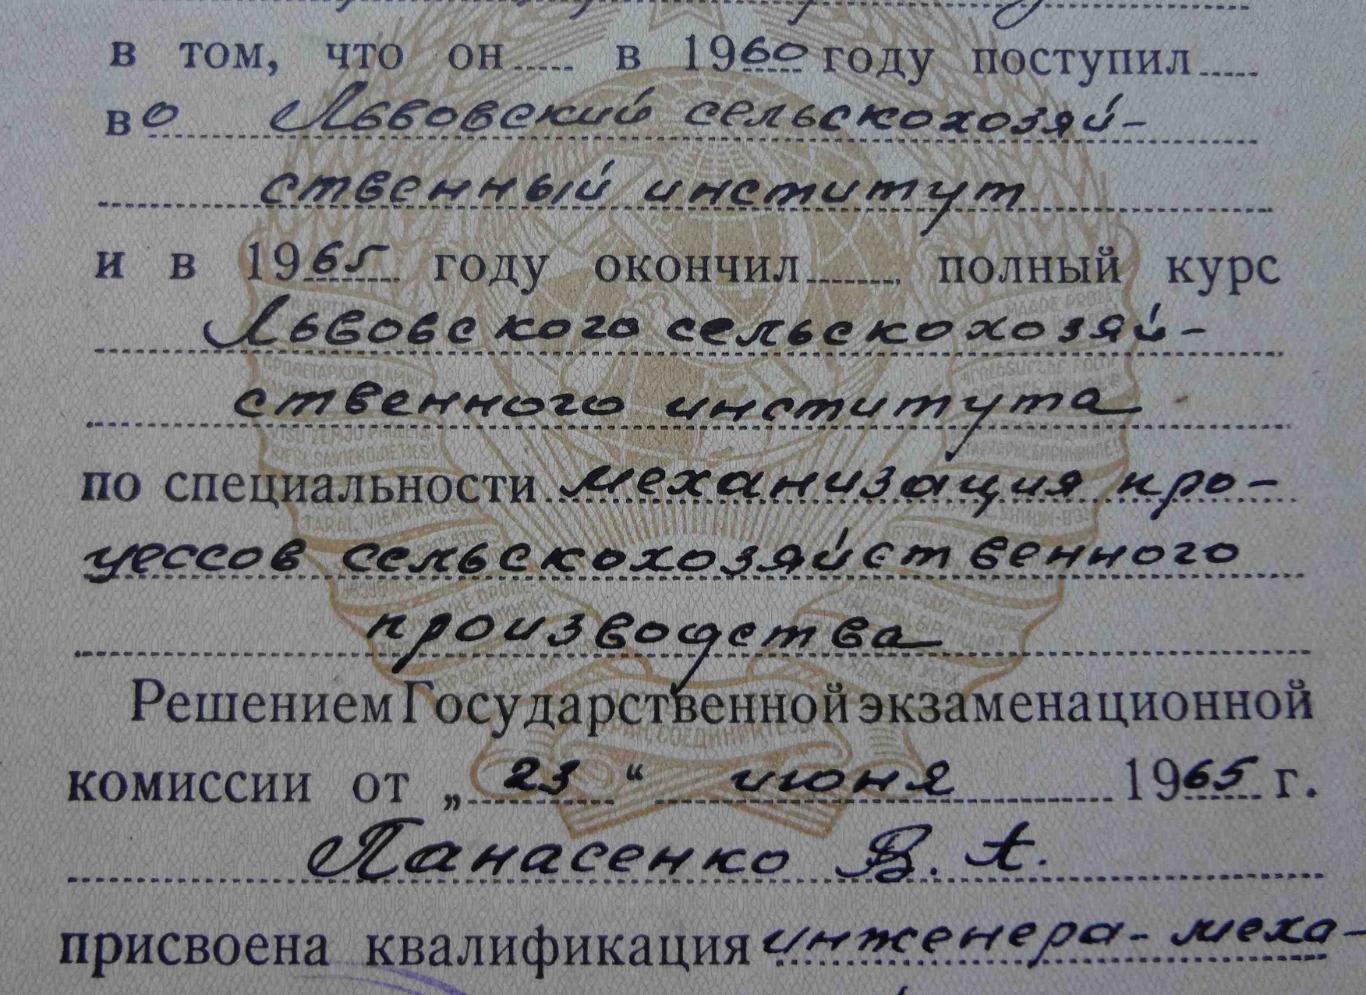 в том, что он в 1960 году поступил
во Львовский сельскохозяй-
ственный институт
и в 1965 году окончил полный курс
Львовского сельскохозяй-
ственного института
по специальности механизация про-
цессов сельскохозяйственного
производства
Решением Государственной экзаменационной
комиссии от „23“ июня 1965 г.
Панасенко В. А.
присвоена квалификация инженера-меха-